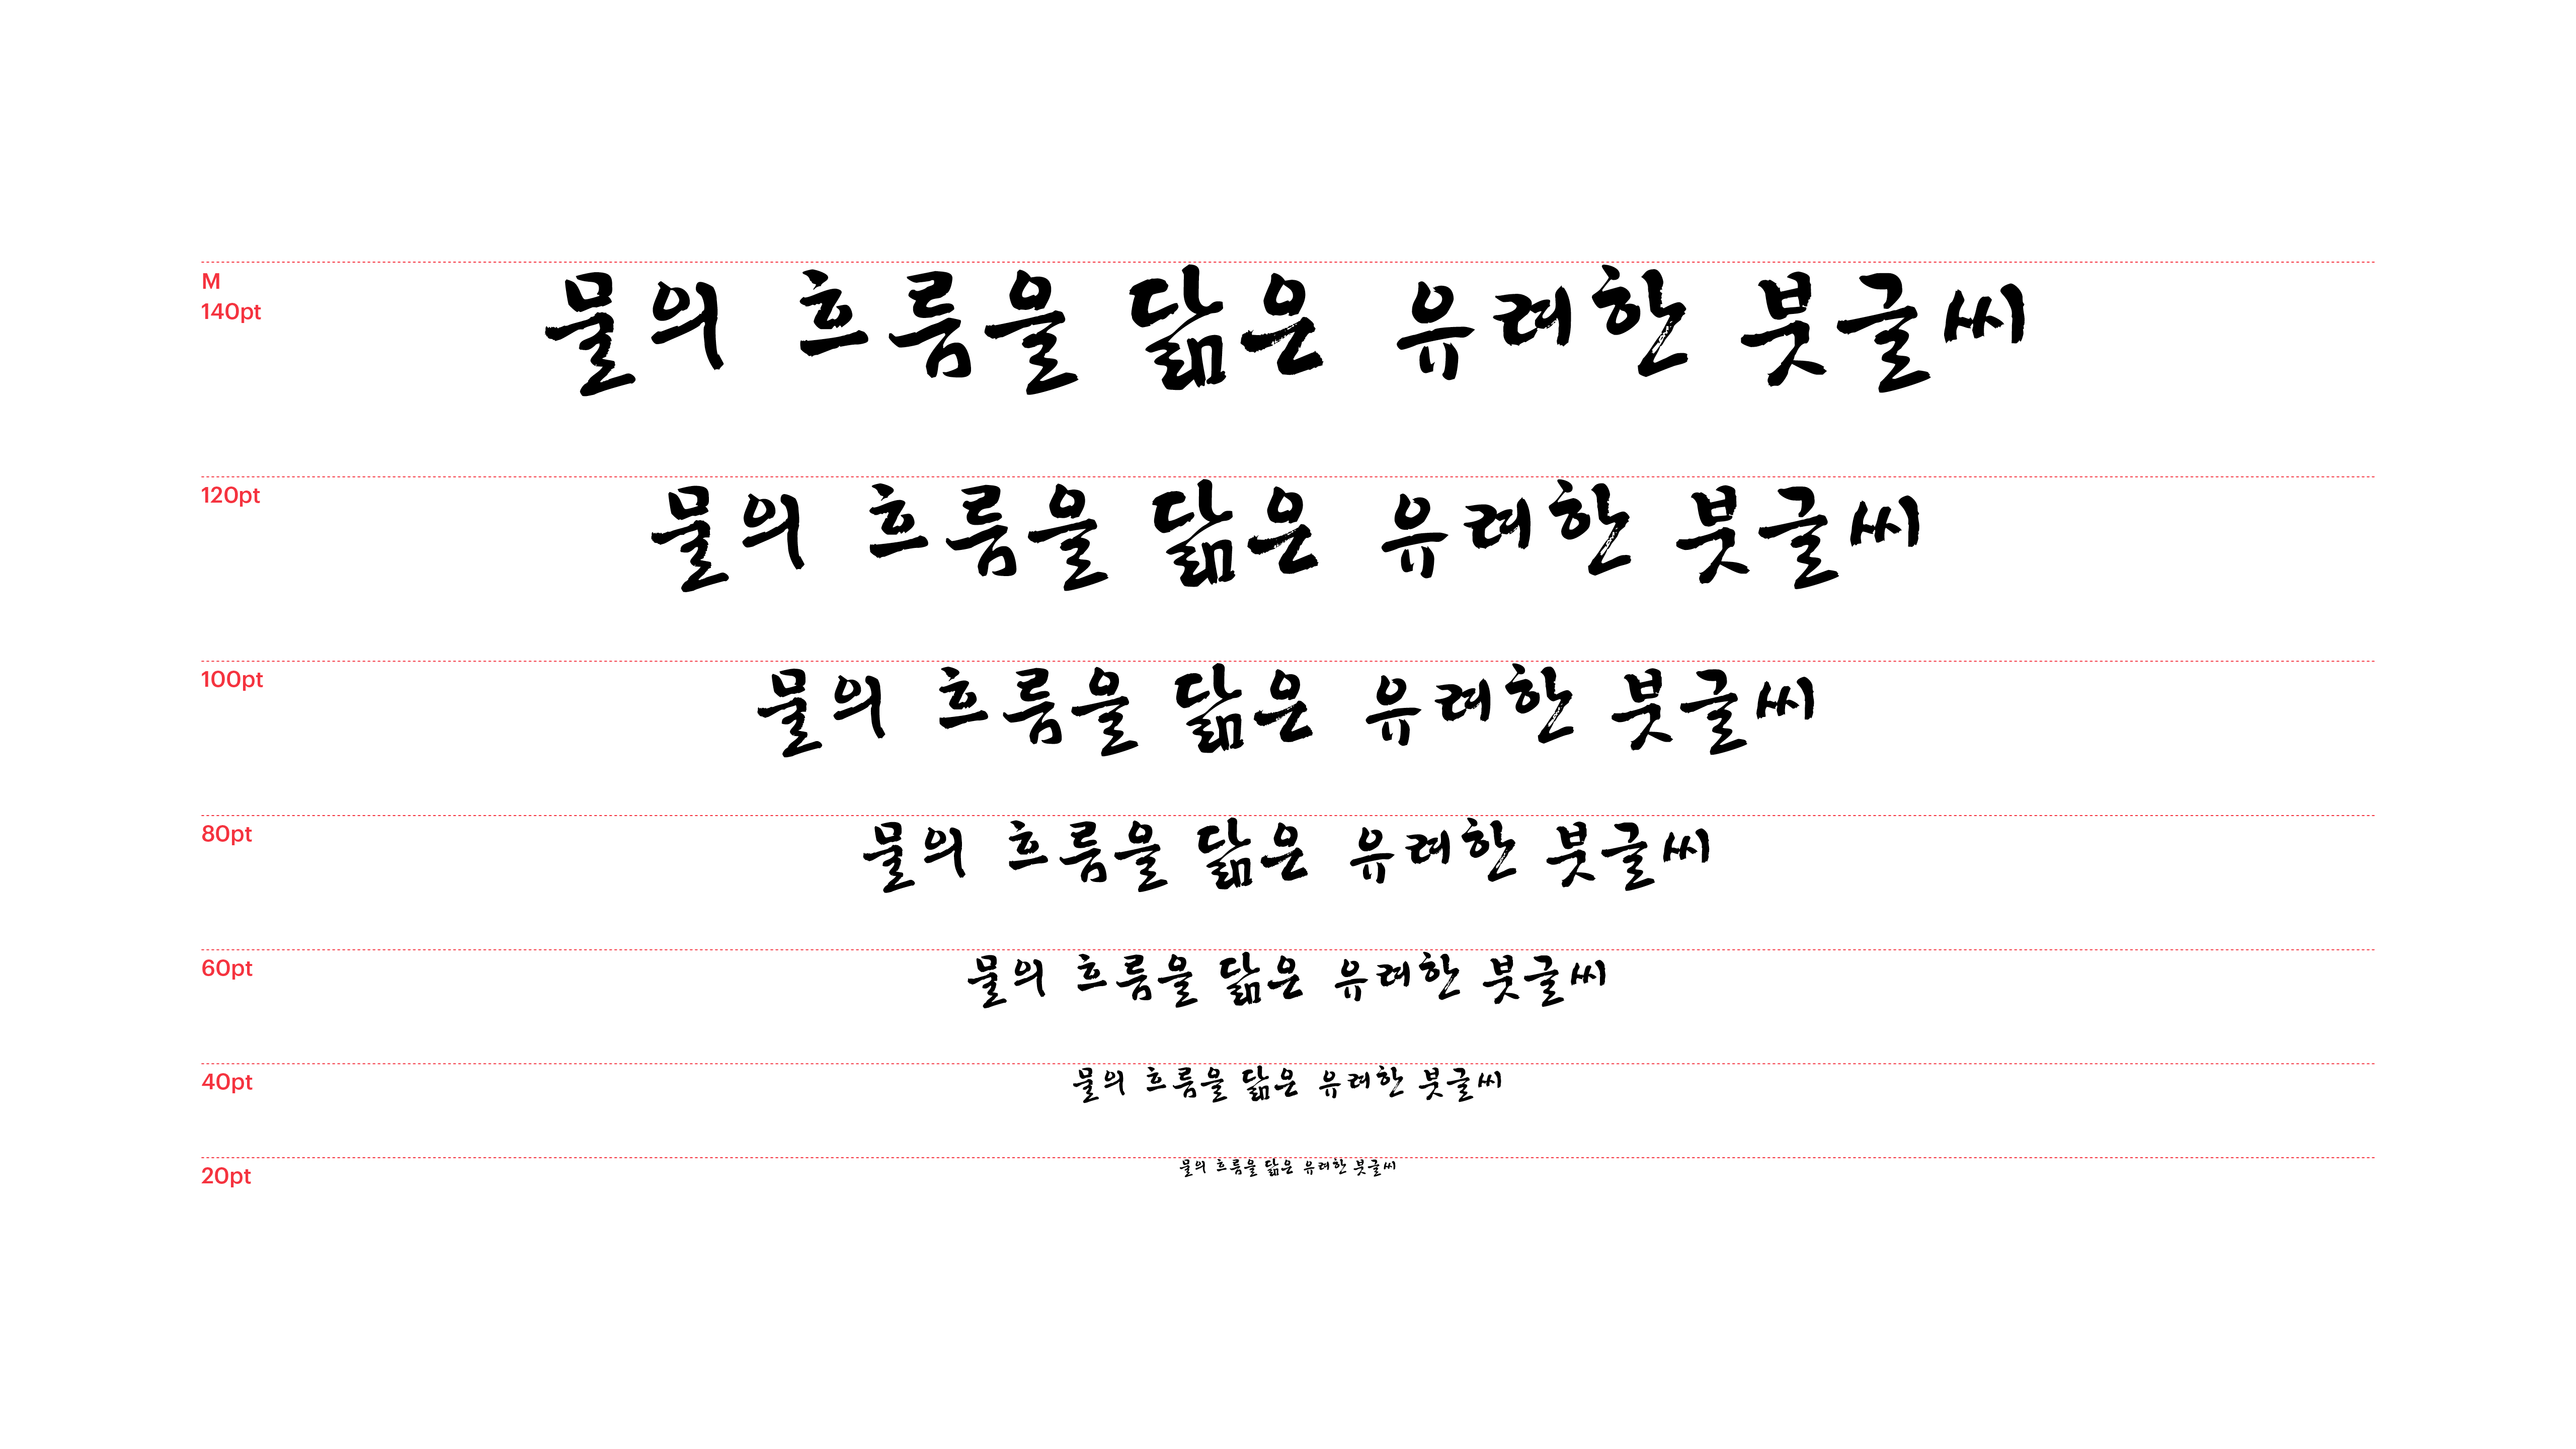 M
140pt
물의 흐름을 닮은 유려한 붓글씨
120pt
물의 흐름을 닮은 유려한 붓글씨
100pt
물의 흐름을 닮은 유려한 붓글씨
80pt
물의 흐름을 닮은 유려한 붓글씨
60pt
물의 흐름을 닮은 유려한 붓글씨
40pt
물의 흐름을 닮은 유려한 붓글씨
20pt
물의 흐름을 닮은 유려한 붓글씨